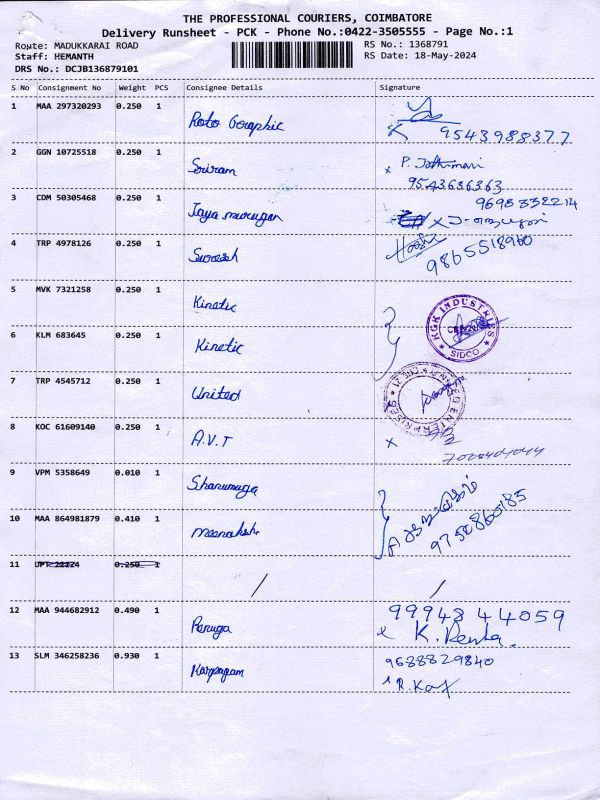 THE PROFESSIONAL COURIERS, COIMBATORE
Delivery Runsheet - PCK - Phone No.:0422-3505555 - Page No.:1
Route: MADUKKARAI ROAD RS No.: 1368791
Staff: HEMANTH RS Date: 18-May-2024
DRS No.: DCJB136879101
S No Consignment No Weight PCS Consignee Details Signature
1 MAA 297320293 0.250 1 Roto Goraphic
X 9543988377
2 GGN 10725518 0.250 1 Sriram
x P.
9543636363
3 CDM 50305468 0.250 1 Jaya murugan
9698832214
x
4 TRP 4978126 0.250 1 Suresh
9865518960
5 MVK 7321258 0.250 1 Kinetic
KGK INDUSTRIES
SIDCO
6 KLM 683645 0.250 1 Kinetic
7 TRP 4545712 0.250 1 United
ENTERPRISES
8 KOC 61609140 0.250 1 A.V.T
x
9 VPM 5358649 0.010 1 Shanmuga
10 MAA 864981879 0.410 1 meenakshi
11 0.250 1 / /
12 MAA 944682912 0.490 1 Renuga
99943 44059
x K. Renu
13 SLM 346258236 0.930 1 Karpagam
9688829840
R.